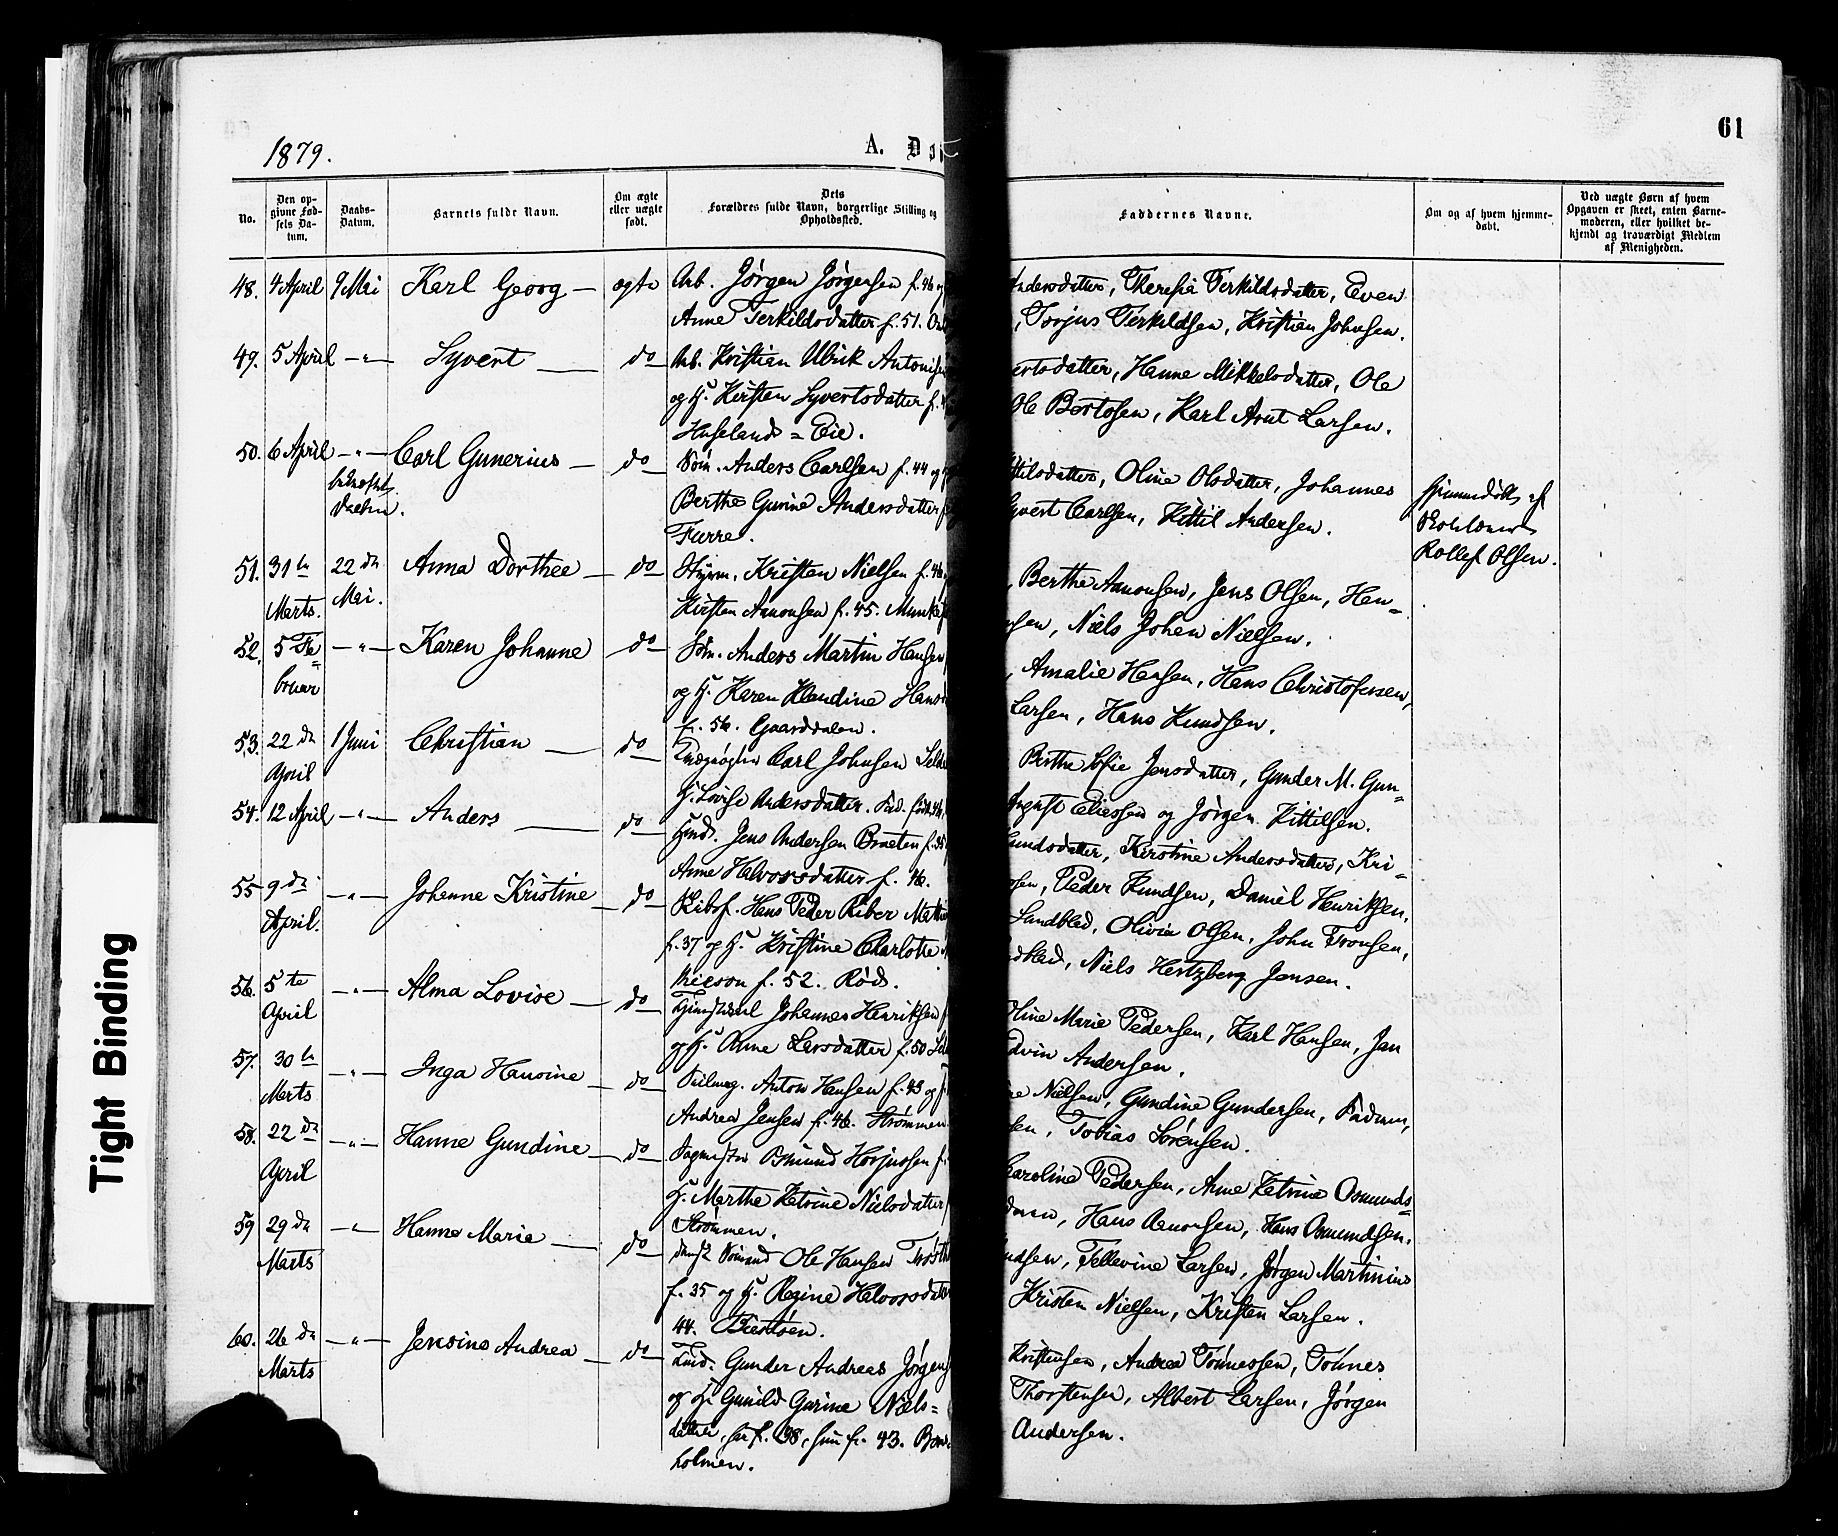 1879.
A. Dø
61
No.
Den op-
givne Fød-
sels Da-
tum.
Daabs-
Datum.
Barnets fulde Navn.
Om ægte
eller uægte
født.
Dets
Forældres fulde Navn, borgerlige Stilling og
Opholdssted.
Faddernes Navne.
Om og af hvem hjemme-
døbt.
Ved uægte Børn af hvem
Opgaven er skeet, enten Barne-
moderen, eller hvilket be-
kjendt og troværdigt Medlem
af Menigheden.
48. 4 April 9 Mai Karl Georg — ægte Arb. Jørgen Jørgensen f. 46 og
Anne Terkildsdatter f. 51.
Andersdatter, Theresia Terkildsdatter, Even
, Torjus Terkildsen, Kristian Johnsen.
49. 5 April —"— Syvert — do Arb. Kristian Ulrik
og H. Kirsten Syvertsdatter f.
Huselands = Eie.
ertsdatter, Hanne Mikkelsdatter, Ole
Ole Bertosen, Karl Arnt Larsen.
50. 6 April —"— Carl Gunerius — do Søm. Anders Carlsen f. 44 og
Berthe Gurine Andersdatter
Furre.
ittilsdatter, Oline Olsdatter, Johannes
Syvert Carlsen, Kittil Andersen.
Hjemmedøbt af
Rollef Olsen.
51. 31te Marts. 22de Mai. Anna Dorthee — do Styrm. Kristen Nielsen f. 46.
Kirsten Aanonsen f. 45.
, Berthe Aanonsen, Jens Olsen, Han=
sen, Niels Johan Nielsen.
52. 5 Fe=
bruar —"— Karen Johanne do Søm. Anders Martin Hansen
og H. Karen Klandine
f. 56. Gaarddalen.
, Amalie Hansen, Hans Christofersen,
Larsen, Hans Knudsen.
53. 22de April 1 Juni Christian — do Carl Johnsen
H. Lovise Andersdatter.
Berthe Sofie Jensdatter, Gunder M. Gun=
August Eliessen og Jørgen Kittilsen.
54. 12 April —"— Anders — do Jens Andersen Braaten f. 35
Anne Halvorsdatter f. 46.
undsdatter, Kirstine Andersdatter, Kri=
sen, Peder Knudsen, Daniel Henriksen.
55 9de April. —"— Johanne Kristine — do Skibsf. Hans Peder Riber
f. 37 og H. Kristine Charlotte
f. 52. Rød.
Sandbled, Olivia Olsen, John Tronsen,
Niels Hertzberg Jensen.
56. 5te April —"— Alma Lovise — do Johannes Henriksen
og H. Anne Larsdatter f. 50
Oline Marie Pedersen, Karl Hansen, Jan
Edvin Andersen.
57. 30te Marts —"— Inga Hansine — do Seilmag. Anton Hansen f. 43 og
Andrea Jensen f. 46. Strømmen
ne Nielsen, Gundine Gundersen, Fadren,
sen, Tobias Sørensen.
58. 22de April —"— Hanne Gundine — do Osmund Horjussen f.
H. Marthe Katrine Nielsdatter
Strømmen.
Karoline Pedersen, Anne Katrine Osmunds=
Hans Aanonsen, Hans Osmundsen.
59 29de Marts —"— Hanna Marie — do Sømand Ole Hansen
f. 35 og H. Regine Halvorsdatter
44.
ndsen, Tellevine Larsen, Jørgen Martinius
Kristen Nielsen, Kristen Larsen.
60. 26de Marts —"— Jensine Andrea — do Gunder Andreas Jørgens
og H. Gunild Gurine Niels=
datter, han f. 38, hun f. 43.
holmen.
Kristensen, Andrea Tønnessen, Tønnes
Thorstensen, Albert Larsen, Jørgen
Andersen.
Tight Binding